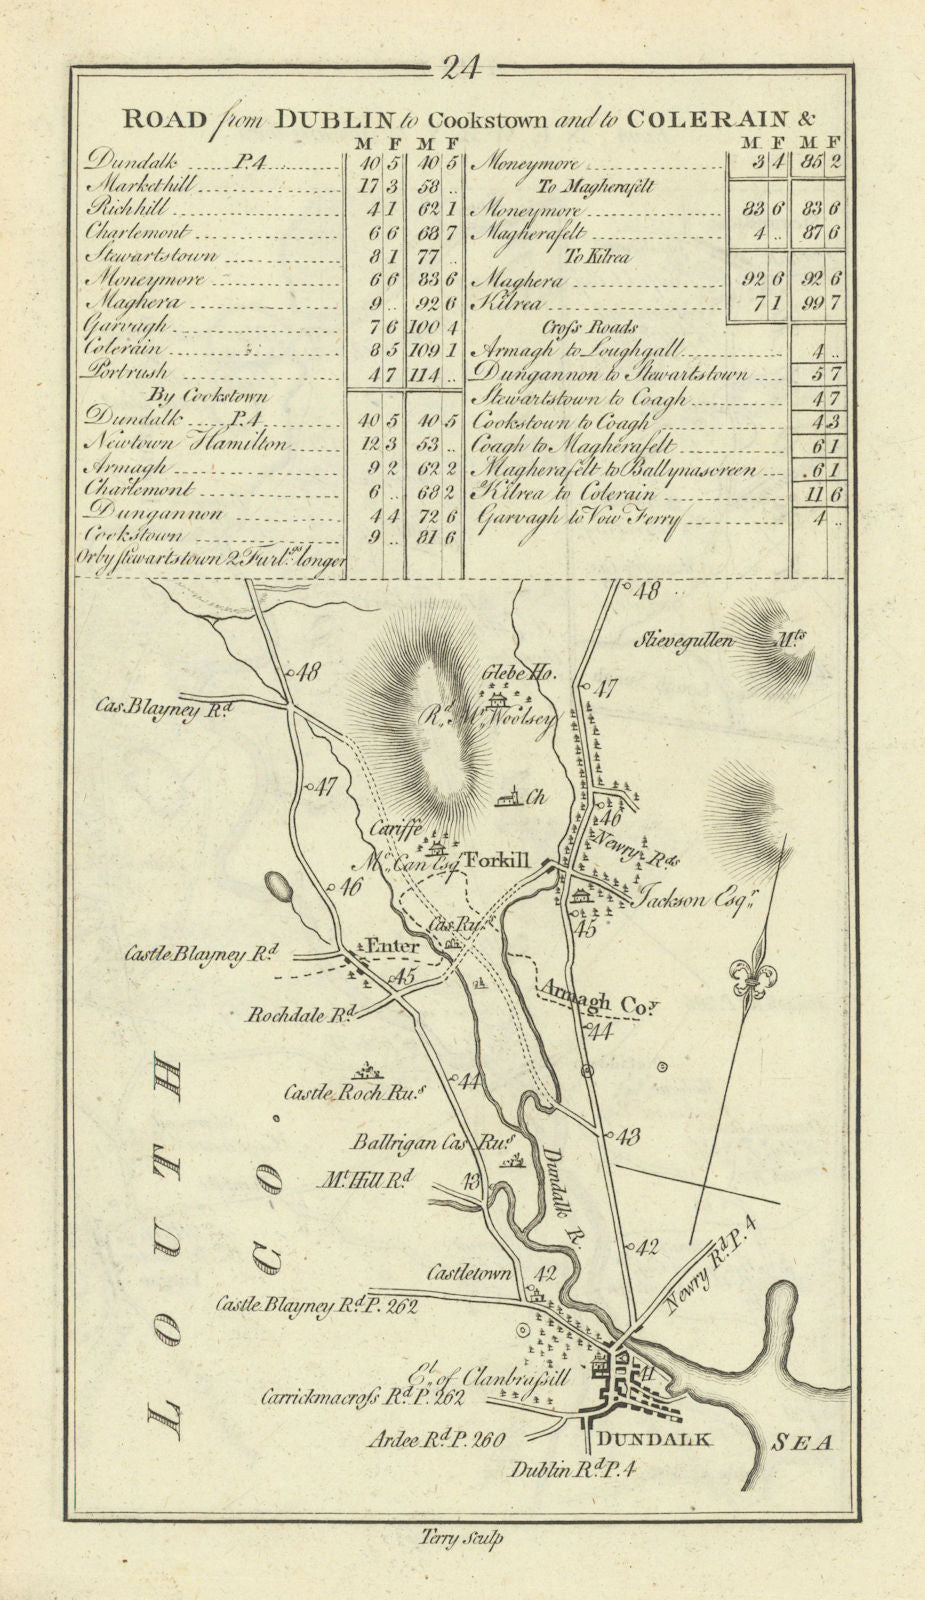 24
ROAD from DUBLIN to Cookstown and to COLERAIN &
M F M F
Dundalk P.4 40 5 40 5
Markethill 17 3 58 ..
Richhill 4 1 62 1
Charlemont 6 6 68 7
Stewartstown 8 1 77 ..
Moneymore 6 6 83 6
Maghera 9 .. 92 6
Garvagh 7 6 100 4
Colerain 8 5 109 1
Portrush 4 7 114 ..
By Cookstown
Dundalk P.4 40 5 40 5
Newtown Hamilton 12 3 53 ..
Armagh 9 2 62 2
Charlemont 6 .. 68 2
Dungannon 4 4 72 6
Cookstown 9 .. 81 6
Or by Stewartstown 2 Furl.gs longer
M F M F
Moneymore 3 4 85 2
To Magherafelt
Moneymore 83 6 83 6
Magherafelt 4 .. 87 6
To Kilrea
Maghera 92 6 92 6
Kilrea 7 1 99 7
Cross Roads
Armagh to Loughgall 4 ..
Dungannon to Stewartstown 5 7
Stewartstown to Coagh 4 7
Cookstown to Coagh 4 3
Coagh to Magherafelt 6 1
Magherafelt to Ballynascreen 6 1
Kilrea to Colerain 11 6
Garvagh to Vow Ferry 4 ..
48
Slievegullen M.ts
48
Glebe Ho.
47
Cas. Blayney R.d
R.d M.r Woolsey
47
Ch
46
Cariffe
Newry R.ds
M.c Can Esq.r
Forkill
46
Jackson Esq.r
Cas. Ru.s
45
Castle Blayney R.d
Enter
45
Armagh Co.y
Rochdale R.d
44
44
Castle Roch Ru.s
43
Ballrigan Cas. Ru.s
M.t Hill R.d
43
Dundalk R.
42
Newry R.d P.4
Castletown
42
Castle Blayney R.d P. 262
LOUTH
CO.
41
E.l of Clanbrassill
Carrickmacross R.d P. 262
Ardee R.d P. 260
DUNDALK
SEA
Dublin R.d P.4
Terry Sculp